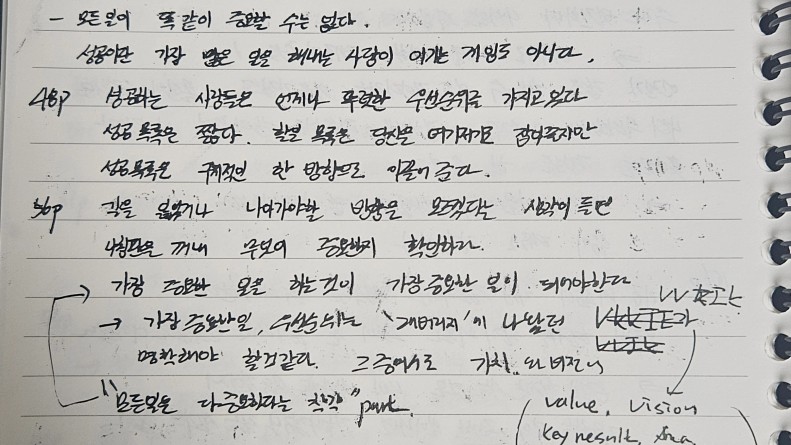 - 모든일이 똑같이 중요할 수는 없다.
성공이란 가장 많은 일을 해내는 사람이 이기는 게임도 아니다.
48p 성공하는 사람들은 언제나 뚜렷한 우선순위를 가지고 있다
성공 목록은 짧다. 할일 목록은 당신을 여기저기로 잡아끌지만
성공 목록은 구체적인 한 방향으로 이끌어 준다.
56p 길을 잃었거나 나아가야할 방향을 모르겠다는 생각이 들면
나침판을 꺼내 무엇이 중요한지 확인하라.
가장 중요한 일을 하는것이 가장중요한 일이 되어야한다
→ 가장 중요한일, 우선순위는 '레버리지'에 나왔던
명확해야 할것같다. 그중에서도 가치 와 비전이
"모든일은 다 중요하다는 착각" part.
value, vision
key result,